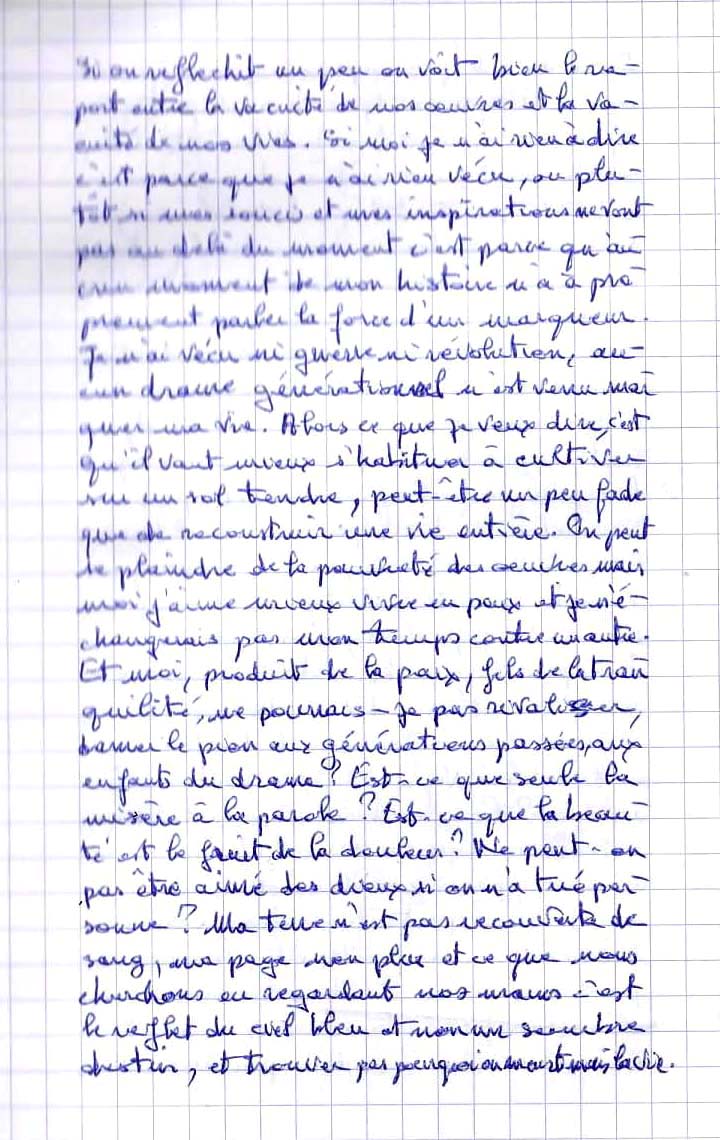 Si on reflechit un peu on voit bien le ra-
port entre la vacuité de nos oeuvres et la va-
cuité de nos vies. Si moi je n'ai rien à dire
c'est parce que je n'ai rien vécu, ou plu-
tôt si mes soucis et mes inspirations ne vont
pas au delà du moment c'est parce qu'au
cun moment de mon histoire n'a à pro
prement parler la force d'un marqueur.
Je n'ai vécu ni guerre ni révolution, au-
cun drame générationnel n'est venu mar
quer ma vie. Alors ce que je veux dire, c'est
qu'il vaut mieux s'habituer à cultiver
sur un sol tendre, peut-être un peu fade
que de reconstruir une vie entière. On peut
se plaindre de la pauvreté des oeuvres mais
moi j'aime mieux vivre en paix et je n'é-
changerais pas mon temps contre un autre.
Et moi, produit de la paix, fils de la tran
quilité, ne pourrais-je pas rivaliser,
damer le pion aux générations passées, aux
enfants du drame? Est-ce que seule la
misère à la parole? Est-ce que la beau-
té est le fruit de la douleur? Ne peut-on
pas être aimé des dieux si on n'a tué per-
sonne? Ma terre n'est pas recouverte de
sang, ma page non plus et ce que nous
cherchons en regardant nos mains c'est
le reflet du ciel bleu et non un sombre
destin, et trouver pas pourquoi on meurt mais la vie.